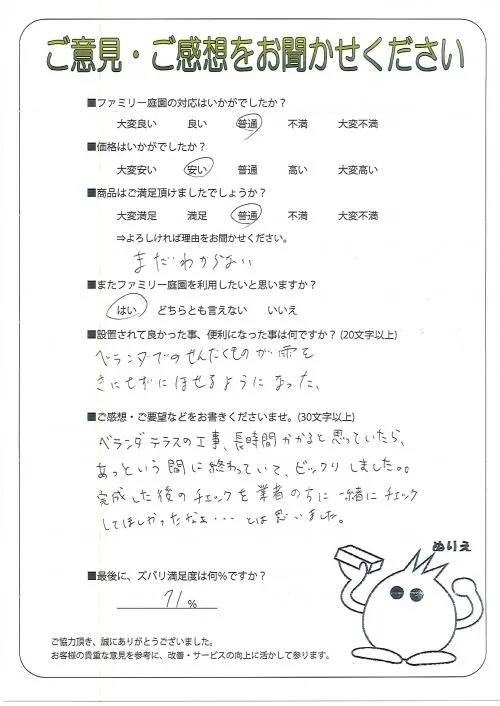 ご意見・ご感想をお聞かせください
■ファミリー庭園の対応はいかがでしたか？
大変良い 良い 普通 不満 大変不満
■価格はいかがでしたか？
大変安い 安い 普通 高い 大変高い
■商品はご満足頂けましたでしょうか？
大変満足 満足 普通 不満 大変不満
⇒よろしければ理由をお聞かせください。
まだわからない
■またファミリー庭園を利用したいと思いますか？
はい どちらとも言えない いいえ
■設置されて良かった事、便利になった事は何ですか？(20文字以上)
ベランダでのせんたくものが雨を
きにせずにほせるようになった、
■ご感想・ご要望などをお書きくださいませ。(30文字以上)
ベランダテラスの工事、長時間かかると思っていたら、
あっという間に終わっていて、ビックリしました。。
完成した後のチェックを業者のちに一緒にチェック
してほしかったなぁ・・・とは思いました。
ぬりえ
■最後に、ズバリ満足度は何％ですか？
71％
ご協力頂き、誠にありがとうございました。
お客様の貴重な意見を参考に、改善・サービスの向上に活かして参ります。